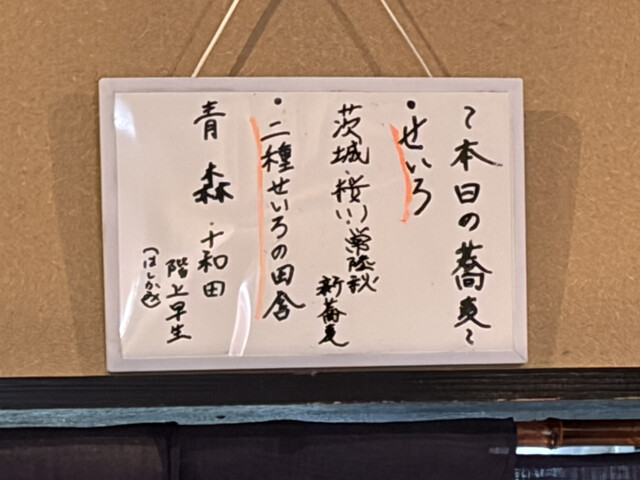 ~本日の蕎麦~
・せいろ
茨城・桜川常陸秋
新蕎麦
・二種せいろの田舎
青森・十和田
階上早生
(はしかみ)